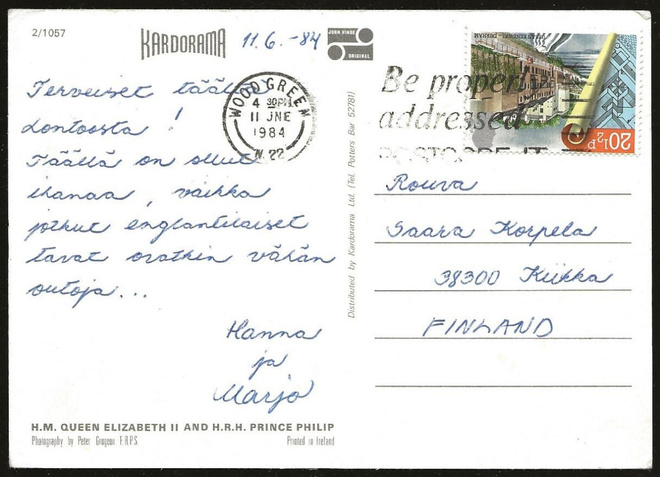 2/1057
KARDORAMA
11.6.-84
JOHN HINDE
ORIGINAL
WOOD GREEN
4 30PM
11 JNE
1984
N.22
Be properly
addressed
POSTCODE IT
20½P
Terveiset täältä
Lontoosta!
Täällä on ollut
ihanaa, vaikka
jotkut englantilaiset
tavat ovatkin vähän
outoja...
Hanna
ja
Marjo
Distributed by Kardorama Ltd. (Tel. Potters Bar 52781)
Rouva
Saara Korpela
38300 Kiikka
FINLAND
H.M. QUEEN ELIZABETH II AND H.R.H. PRINCE PHILIP
Photography by Peter Grugeon F.R.P.S
Printed in Ireland